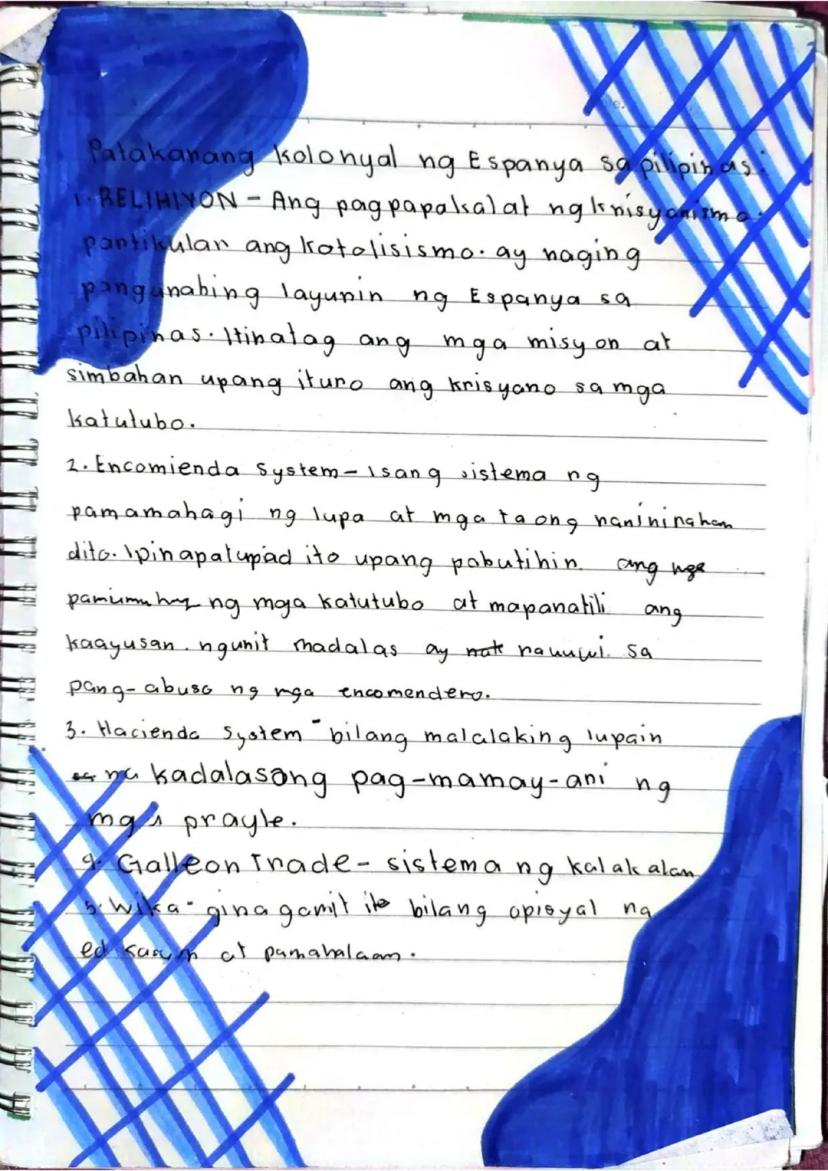 Patakarang kolonyal ng Espanya sa pilipinas:
1. RELIHIYON - Ang pagpapakalat ng krisyanismo
partikular ang katolisismo. ay naging
pangunahing layunin ng Espanya sa
pilipinas. Itinatag ang mga misyon at
simbahan upang ituro ang krisyano sa mga
katutubo.
2. Encomienda System - Isang sistema ng
pamamahagi ng lupa at mga taong naninirahan
dito. Ipinapatupad ito upang pabutihin ang
ng mga katutubo at mapanatili ang
kaayusan. ngunit madalas ay nauuwi sa
pang-abuso ng mga encomendero.
3. Hacienda System - bilang malalaking lupain
na kadalasang pag-mamay-ari ng
mga prayle.
4. Galleon Trade - sistema ng kalakalan
5. Wika - ginagamit ito bilang opisyal na
at pamahalaan.